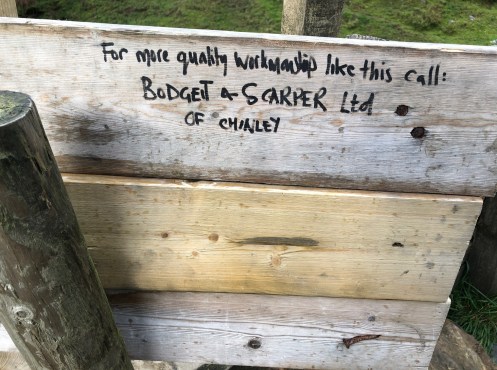 For more quality workmanship like this call:
BODGEIT & SCARPER Ltd
OF CHINLEY